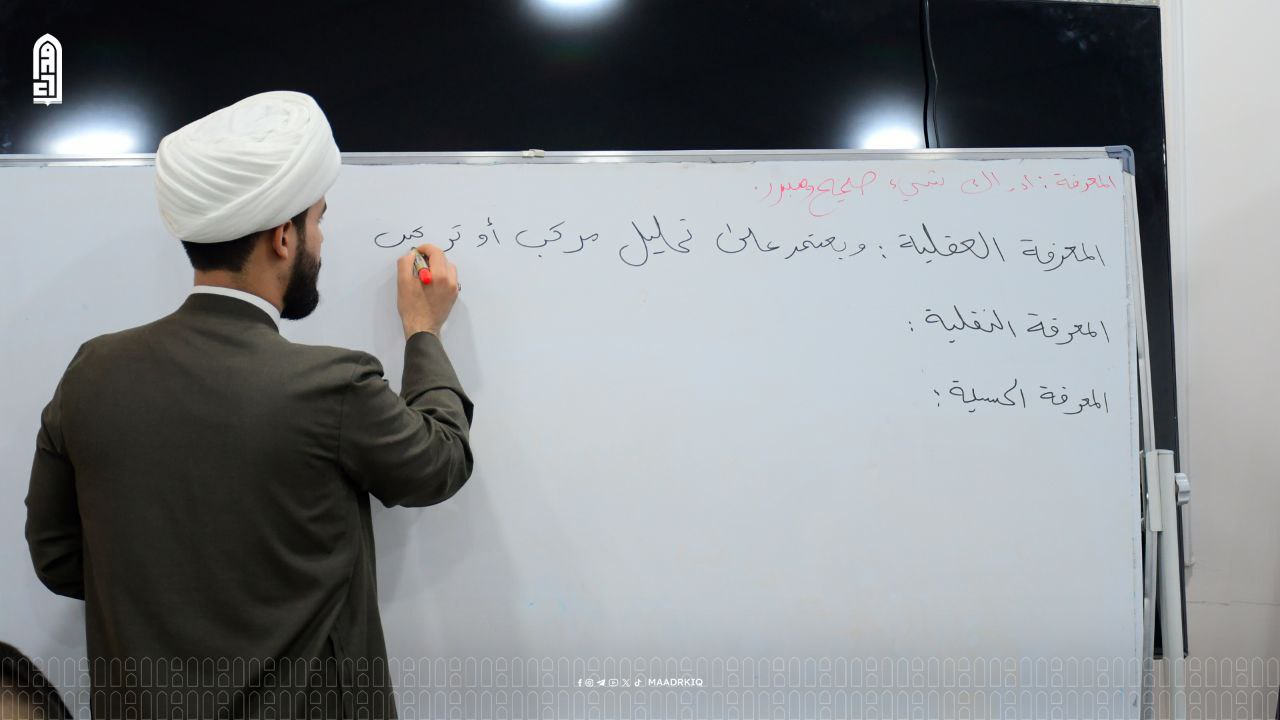 المعرفة : ادراك شيء صحيح ومبرر.
المعرفة العقلية : ويعتمد على تحليل مركب أو تركيب
المعرفة النقلية :
المعرفة الحسية :
MAADRKIQ